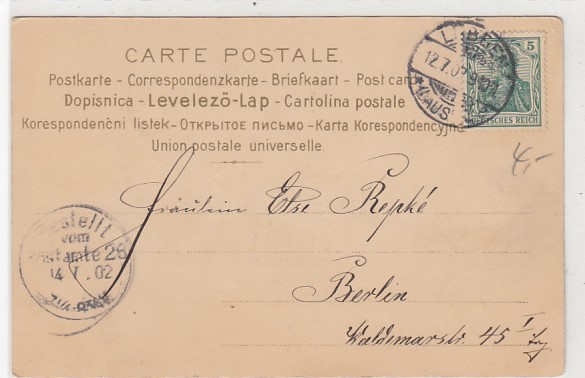 CARTE POSTALE.
Postkarte - Correspondenzkarte - Briefkaart - Post card
Dopisnica - Levelező-Lap - Cartolina postale
Korespondenční listek - ОТКРЫТОЕ ПИСЬМО - Karta Korespondencyjna
Union postale universelle.
5
DEUTSCHES REICH
4,-
Fräulein Else Repké
Bestellt
vom
Postamte 26
14 7. 02
Berlin
Waldemarstr. 45 I